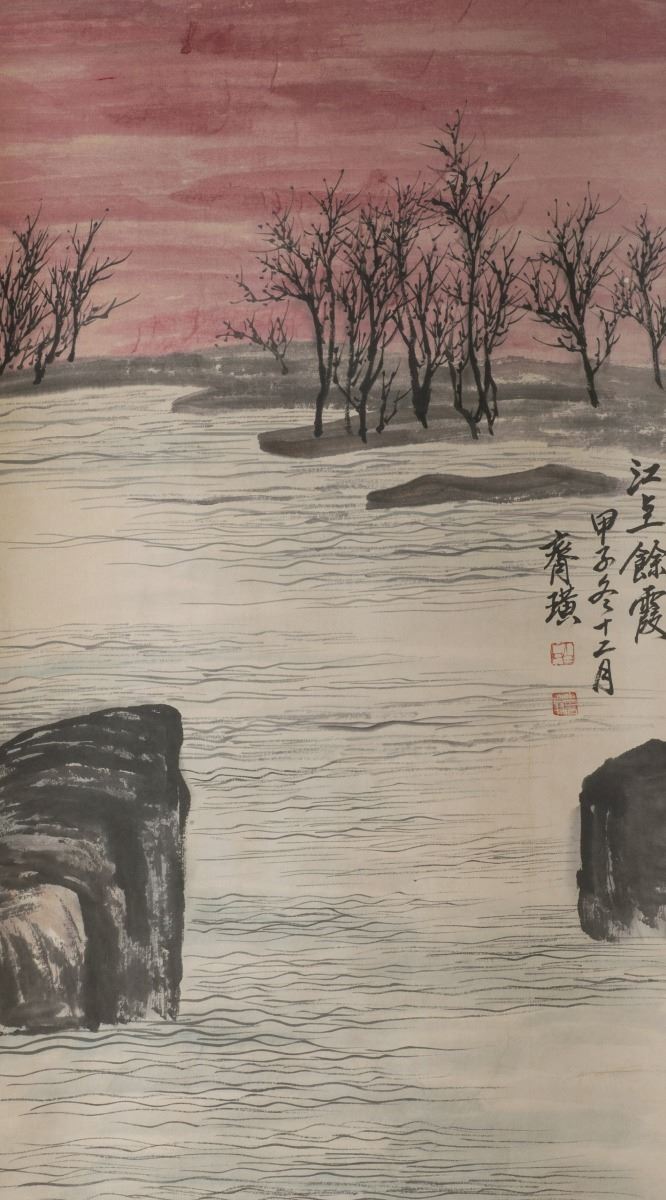 江上餘霞
甲子冬十二月
齊璜